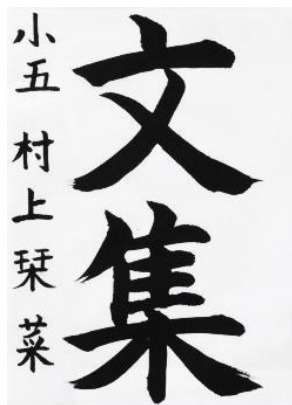 文集
小五 村上 栞菜